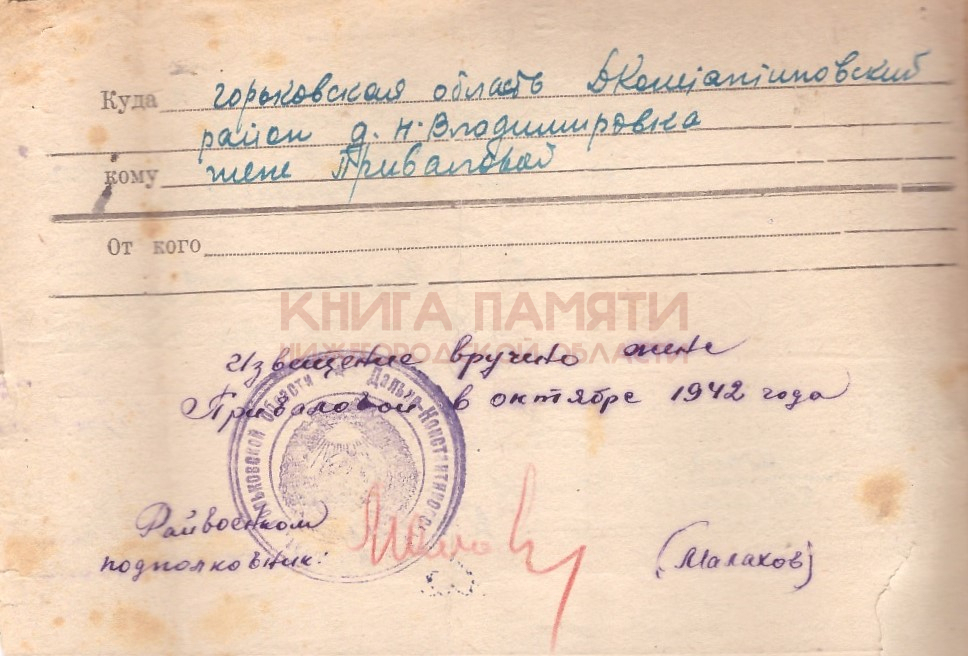 Куда горьковская область ДКонстантиновский
район д. Н. Владимировка
кому жене Приваловой
От кого
КНИГА ПАМЯТИ
НИЖЕГОРОДСКОЙ ОБЛАСТИ
Извещение вручено жене
Приваловой в октябре 1942 года
Горьковской Области Дальне-Константиновс
Райвоенком
подполковник:
(Малахов)